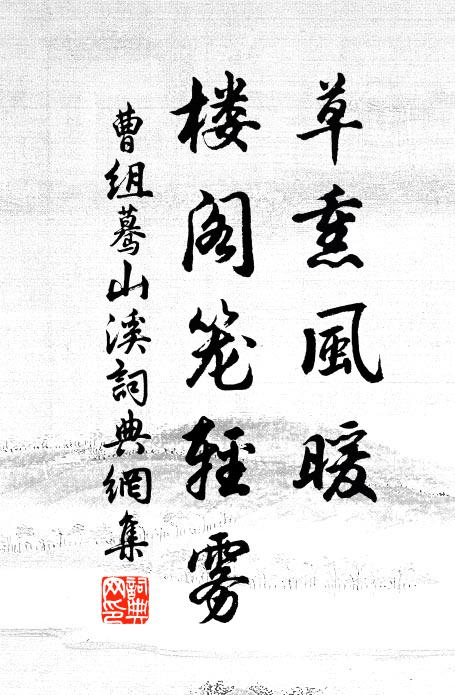 草熏風暖
楼阁笼輕雾
曹组蓦山溪詞典網集
詞典网印